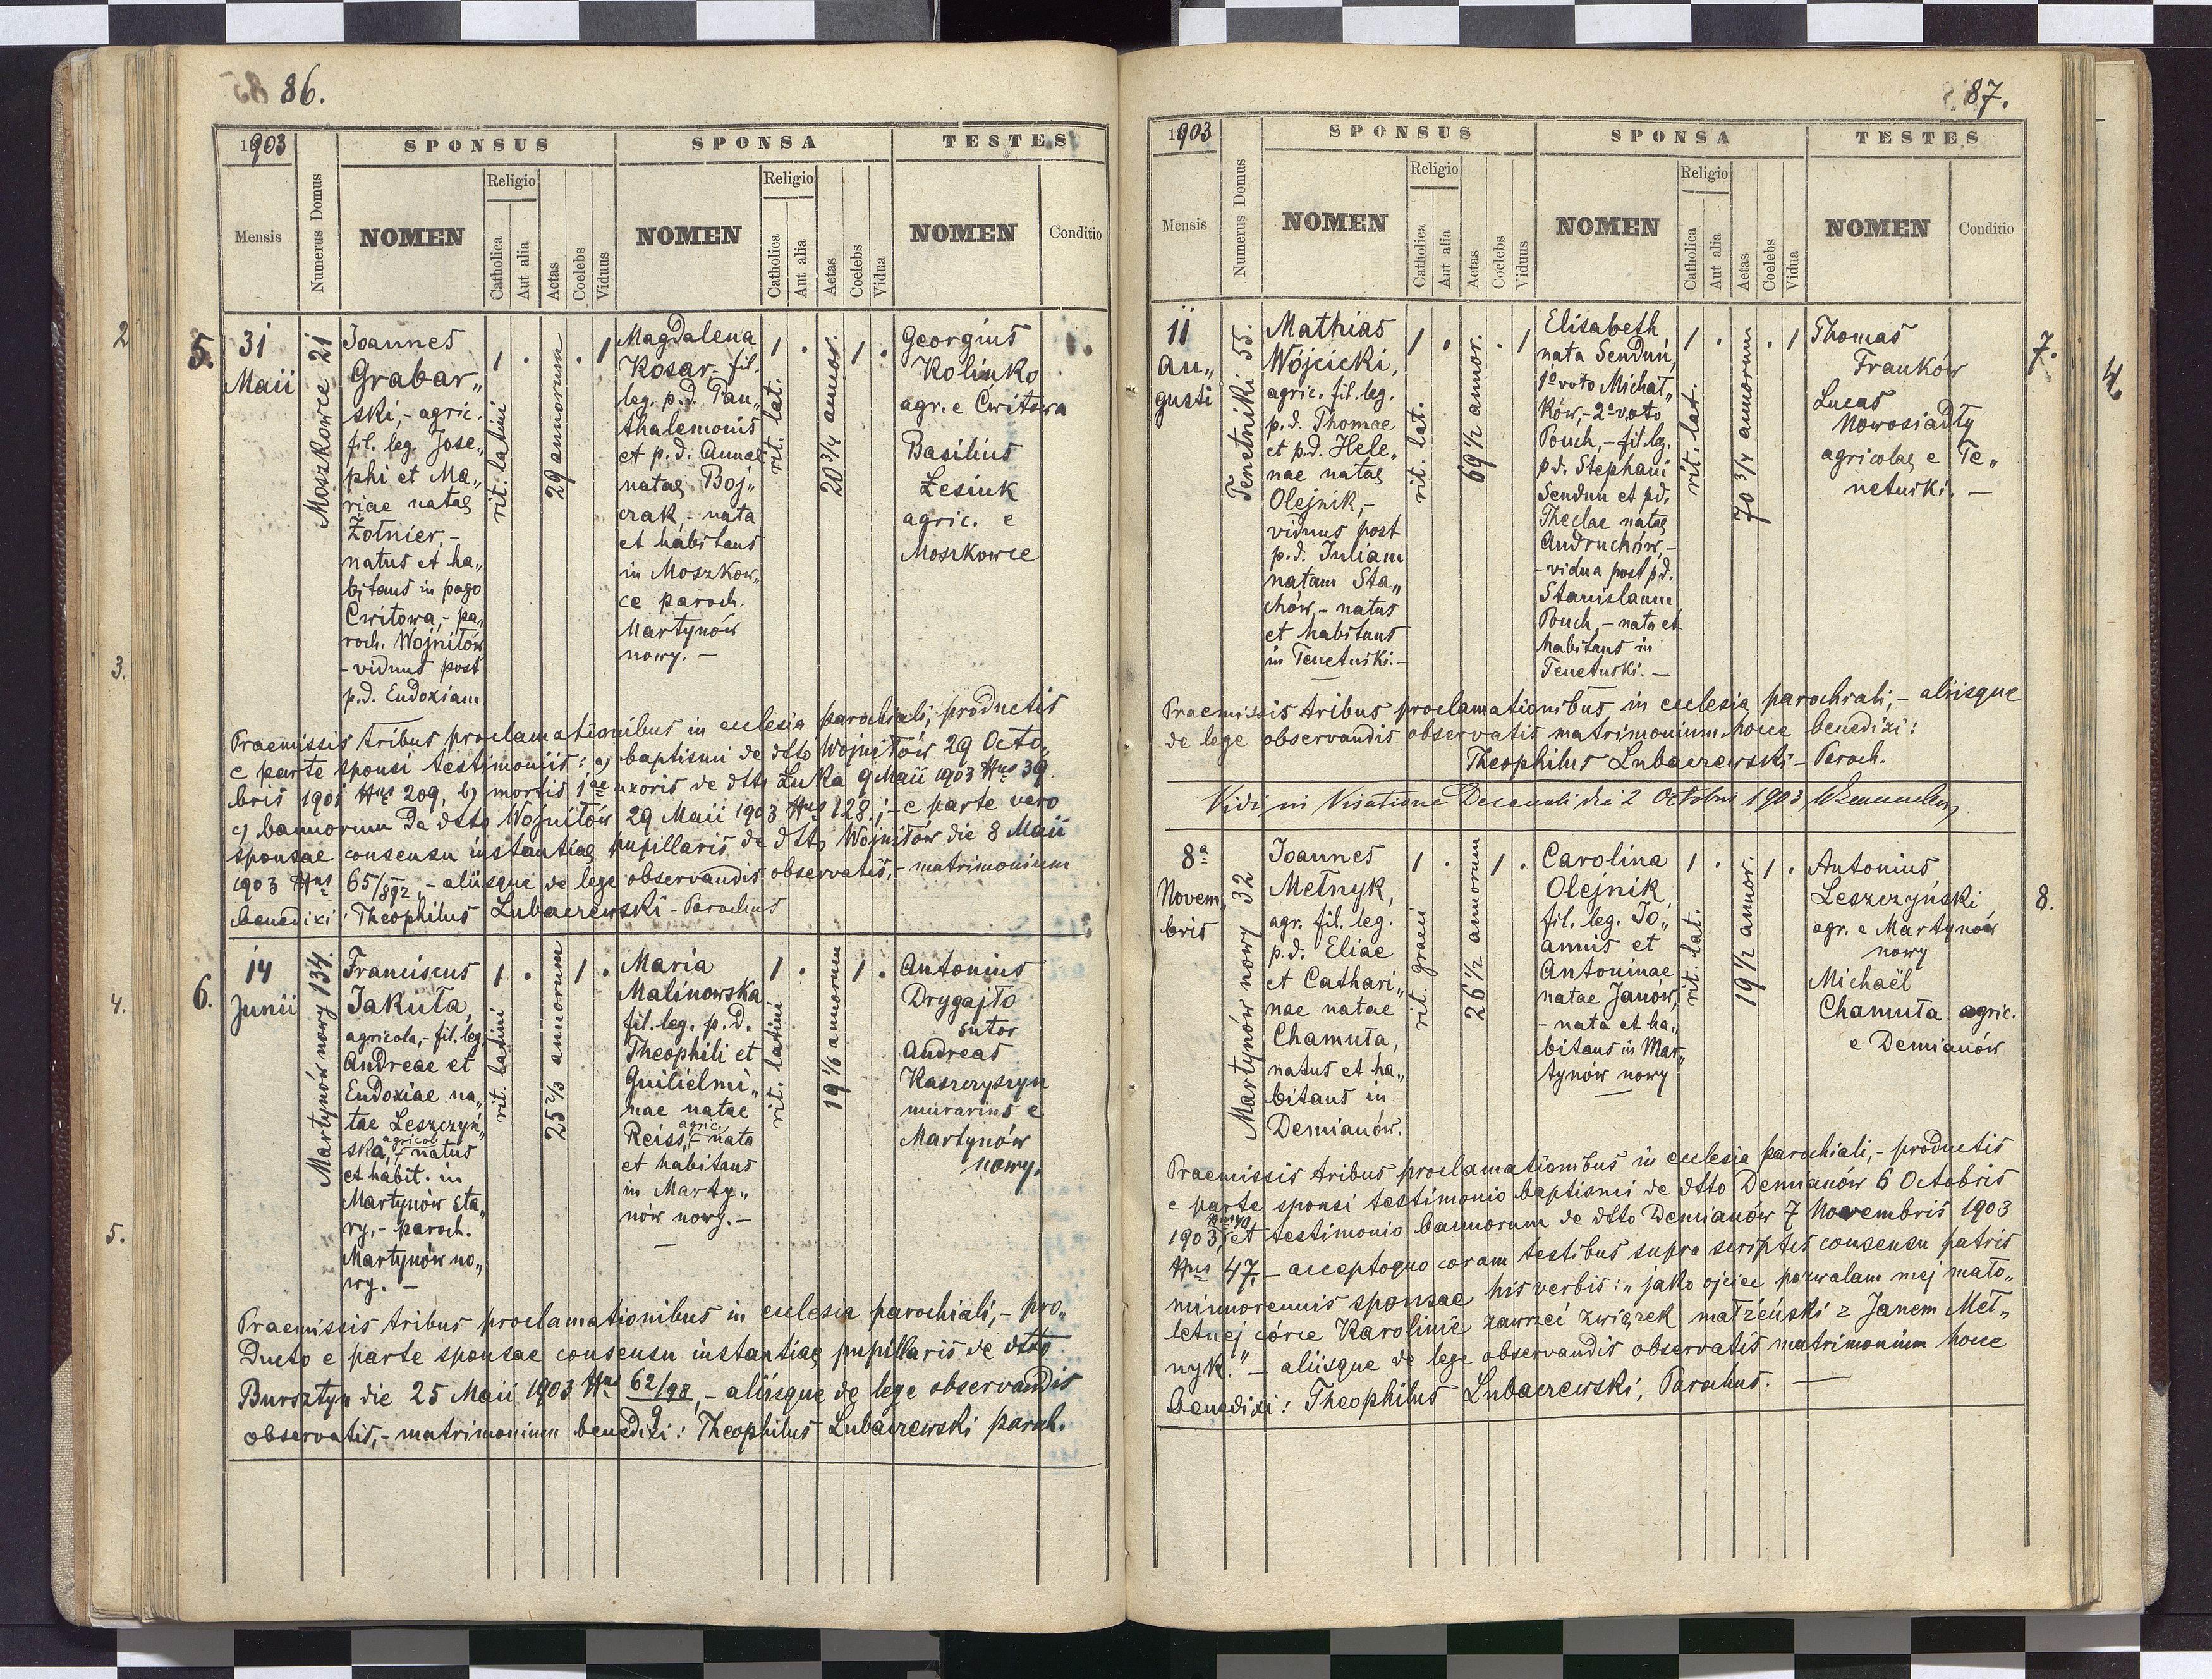 86.
1903
SPONSUS
SPONSA
TESTES
Mensis
Numerus Domus
NOMEN
Religio
Catholica
Aut alia
Aetas
Coelebs
Viduus
NOMEN
Religio
Catholica
Aut alia
Aetas
Coelebs
Vidua
NOMEN
Conditio
5.
31
Maii
Moszkowce 21
Joannes
Grabar„
ski, - agric.
fil. leg. Jose„
phi et Ma„
riae natae
Żołnier, -
natus et ha„
bitans in pago
Cwitowa, - pa„
roch. Wojniłów
- viduus post
p.d. Eudoxiam
1 . . 1
rit. latini
29 annorum
Magdalena
Kosar - fil.
leg. p.d. Pan„
thalemonis
et p.d. Annae
natae Boj„
czak, - nata
et habitans
in Moszkow„
ce paroch.
Martynów
nowy. -
1 . 1 .
rit. lat.
20 3/4 annor.
Georgius
Kolinko
agr. e Cwitowa
Basilius
Lesiuk
agric. e
Moszkowce
Praemissis tribus proclamationibus in ecclesia parochiali, productis
e parte sponsi testimoniis: a) baptismi de dtto Wojniłów 29 Octo„
bris 1901 Nrus 209, b) mortis 1ae uxoris de dtto Łuka 9 Maii 1903 Nrus 39.
c) bannorum de dtto Wojniłów 29 Maii 1903 Nrus 128.; - e parte vero
sponsae consensu instantiae pupillaris de dtto Wojniłów die 8 Maii
1903 Nrus 65/892, - aliisque de lege observandis observatis, - matrimonium
benedixi: Theophilus Lubaczewski - Parochus
6.
14
Junii
Martynów nowy 134.
Franciscus
Jakuta,
agricola, - fil. leg.
Andreae et
Eudoxiae na„
tae Leszczyń„
agricol.
ska, - natus
et habit. in
Martynów sta„
ry, - paroch.
Martynów no„
wy. -
1 . 1 .
rit. latini
25 2/3 annorum
Maria
Malinowska
fil. leg. p.d.
Theophili et
Guilielmi„
nae natae
agric.
Reiss, - nata
et habitans
in Marty„
nów nowy. -
1 . 1 .
rit. latini
19 1/6 annorum
Antonius
Drygajło
sutor
Andreas
Kaszczyszyn
murarius e
Martynów
nowy.
Praemissis tribus proclamationibus in ecclesia parochiali, - pro„
ducto e parte sponsae consensu instantiae pupillaris de dtto
Bursztyn die 25 Maii 1903 Nrus 62/98, - aliisque de lege observandis
9
observatis, - matrimonium benedixi: Theophilus Lubaczewski paroch.
87.
1903
SPONSUS
SPONSA
TESTES
Mensis
Numerus Domus
NOMEN
Religio
Catholica
Aut alia
Aetas
Coelebs
Viduus
NOMEN
Religio
Catholica
Aut alia
Aetas
Coelebs
Vidua
NOMEN
Conditio
7.
11
Au„
gusti
Tenetniki 55.
Mathias
Wójcicki,
agric. fil. leg.
p.d. Thomae
et p.d. Hele„
nae natae
Olejnik, -
viduus post
p.d. Juliam
natam Sta„
chów, - natus
et habitans
in Tenetniki. -
1 . . 1
rit. lat.
69 1/2 annor.
Elisabeth
nata Senduń,
1o voto Michał„
ków, - 2o voto
Pouch, - fil. leg.
p.d. Stephani
Sendun et p.d.
Theclae natae
Andruchów, -
- vidua post p.d.
Stanislaum
Pouch, - nata et
habitans in
Tenetniki. -
1 . . 1
rit. lat.
70 3/4 annorum
Thomas
Franków
Lucas
Nowosiadły
agricolae e Te„
netniki. -
Praemissis tribus proclamationibus in ecclesia parochiali, - aliisque
de lege observandis observatis matrimonium hocce benedixi:
Theophilus Lubaczewski - Paroch.
Vidi in Visatione Decanali die 2 Octobris 1903
8.
8a
Novem„
bris
Martynów nowy 32
Joannes
Mełnyk,
agr. fil. leg.
p.d. Eliae
et Cathari„
nae natae
Chamuta,
natus et ha„
bitans in
Demianów.
1 . 1 .
rit. graeci
26 1/2 annorum
Carolina
Olejnik,
fil. leg. Jo„
annis et
Antoninae
natae Janów,
- nata et ha„
bitans in Mar„
tynów nowy
1 . 1 .
rit. lat.
19 1/2 annor.
Antonius
Leszczyński
agr. e Martynów
nowy
Michaël
Chamuta agric.
e Demianów
Praemissis tribus proclamationibus in ecclesia parochiali, - productis
e parte sponsi testimonio baptismi de dtto Demianów 6 Octobris
1903, et testimonio bannorum de dtto Demianów 7 Novembris 1903
Nrus 47. - acceptoquo coram testibus supra scriptis consensu patris
minorennis sponsae his verbis: „jako ojciec pozwalam mej mało„
letniej córce Karolinie zawrzeć związek małżeński z Janem Meł„
nyk." - aliisque de lege observandis observatis matrimonium hocce
benedixi: Theophilus Lubaczewski, Parochus. -
2
3.
4.
5.
4